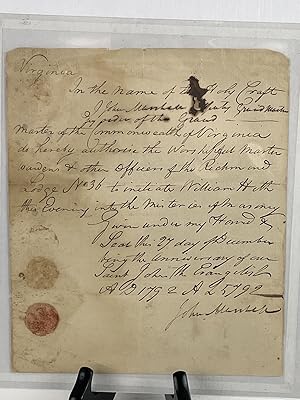 Virginia
In the name of the Holy Craft
I John Marshall Deputy Grand Master
of the Grand
Master of the Commonwealth of Virginia
do hereby authorise the Worshipful Master
wardens & other Officers of the Richmond
Lodge No 36 to initiate William H
this Evening into the Misteries of Masonry
Given under my Hand &
Seal this 27 day of December
being the Anniversary of our
Saint John the Evangelist
A D 1792 A L 5792
John Marshall